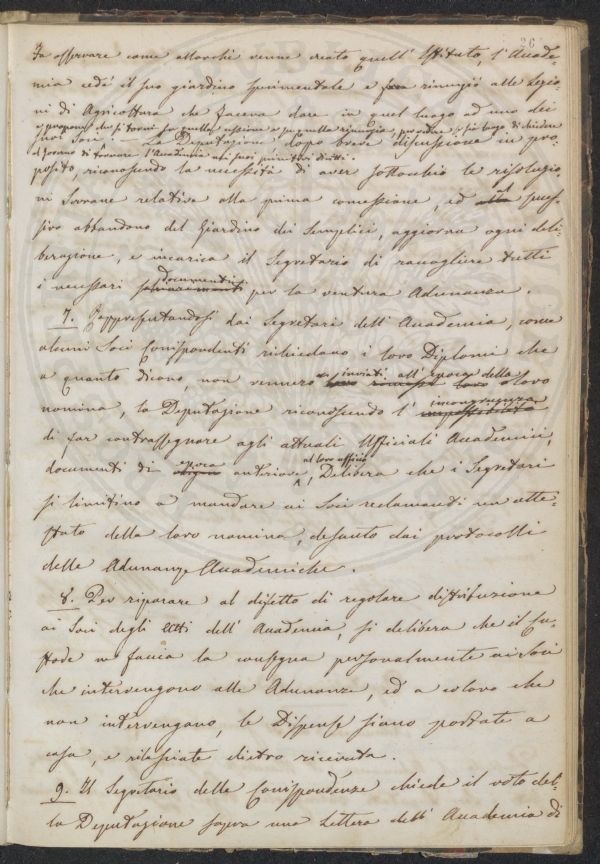 26
Fa osservare come allorchè venne creato quell' Istituto, l'Accade-
mia cedè il suo giardino sperimentale e fra rinunziò alle Lezio-
ni di Agricoltura che faceva dare in quel luogo ad uno dei
e propone che si torni su quella cessione e su quella rinunzia, per vedere se sia luogo di chiedere
suoi Soci. — La Deputazione dopo breve discussione in pro-
al Governo di tornare l'Accademia nei suoi primitivi diritti.
posito, riconosendo la necessità di aver sottocchio le risoluzio-
ni Sovrane relative alla prima concessione, ed alla al succes-
sivo abbandono del Giardino dei Semplici, aggiorna ogni deli-
berazione, e incarica il Segretario di raccogliere tutti
documenti
i necessari schiarimenti per la ventura Adunanza.
7. Rappresentandosi dai Segretari dell' Accademia, come
alcuni Soci Corrispondenti richiedano i loro Diplomi che
inviati all' epoca della
a quanto dicono, non vennero loro rimessi loro a loro
incongruenza
nomina, la Deputazione riconoscendo l' impossibilità
di far contrassegnare agli attuali Ufficiali Accademici,
epoca al loro ufficio
documenti di origine anteriore, Delibera che i Segretari
si limitino a mandare ai Soci reclamanti un atte-
stato della loro nomina, desunto dai protocolli
delle Adunanze Accademiche.
8. Per riparare al difetto di regolare distribuzione
ai Soci degli Atti dell' Accademia, si delibera che il Cu-
stode ne faccia la consegna personalmente ai Soci
che intervengono alle Adunanze, ed a coloro che
non intervengano, le Dispense siano portate a
casa, e rilasciate dietro ricevuta.
9. Il Segretario delle Corrispondenze chiede il voto del-
la Deputazione sopra una Lettera dell' Accademia di